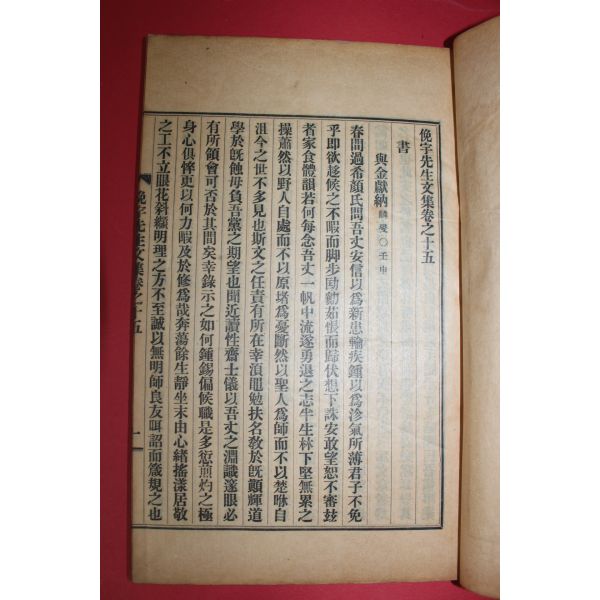 俛宇先生文集卷之十五
書
與金獻納 麟燮○壬申
春間過希顔氏問吾丈安信以爲新患輪疾鍾以爲沴氣所薄君子不免
乎卽欲趍候之不暇而脚步劻勷茹恨而歸伏想下誅安敢望恕不審玆
者家食體韻若何每念吾丈一帆中流遂勇退之志半生林下堅無累之
操蕭然以野人自處而不以原堵爲憂斷然以聖人爲師而不以楚咻自
沮今之世不多見也斯文之任責有所在幸湏黽勉扶名敎於旣顚輝道
學於旣蝕毋負吾黨之期望也聞近讀性齋士儀以吾丈之淵識邃眼必
有所領會可否於其間矣幸錄示之如何鍾錫偏候職是多愆煎灼之極
身心俱悴更以何力暇及於修爲哉奔蕩餘生靜坐末由心緖搖漾居敬
之工不立眼花斜纈明理之方不至誠以無明師良友咡詔而箴規之也
俛宇先生文集卷之十五
一